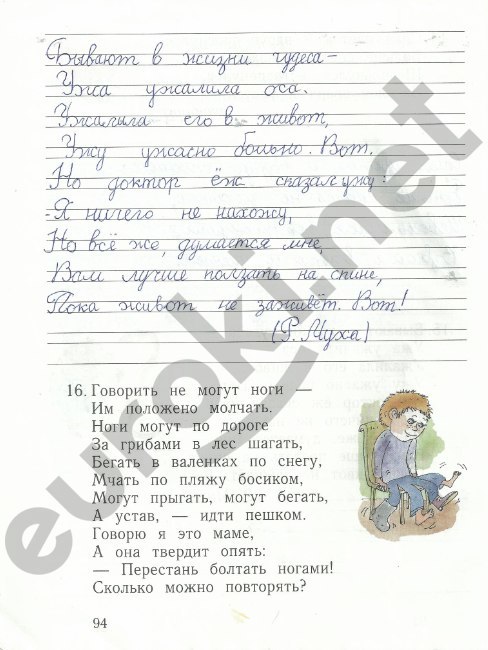 Бывают в жизни чудеса –
Ужа ужалила оса.
Ужалила его в живот,
Ужу ужасно больно. Вот.
Но доктор ёж сказал ужу:
-Я ничего не нахожу,
Но всё же, думается мне,
Вам лучше ползать на спине,
Пока живот не заживёт. Вот!
(Р. Муха)
16. Говорить не могут ноги —
Им положено молчать.
Ноги могут по дороге
За грибами в лес шагать,
Бегать в валенках по снегу,
Мчать по пляжу босиком,
Могут прыгать, могут бегать,
А устав, — идти пешком.
Говорю я это маме,
А она твердит опять:
— Перестань болтать ногами!
Сколько можно повторять?
94
euroki.net